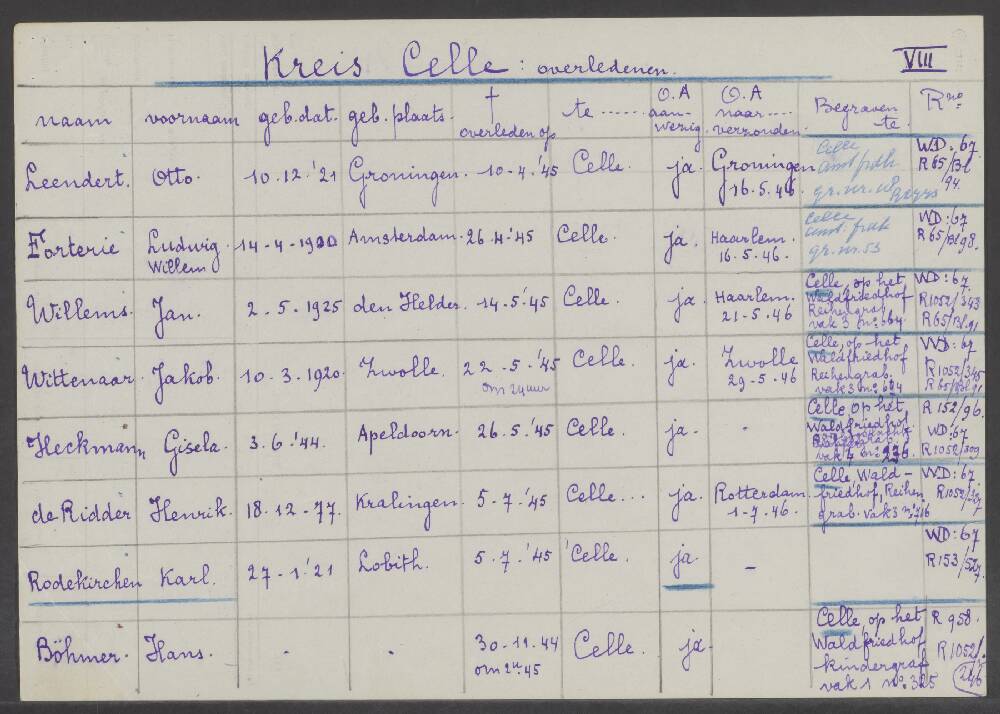 Kreis Celle: overledenen. VIII
naam voornaam geb. dat. geb. plaats. † overleden op te ...... O.A aanwezig. O.A naar .... verzonden. Begraven te. R no.
Leendert. Otto. 10.12.'21 Groningen. 10-4.'45 Celle. ja. Groningen 16.5.46. Celle WD.67. R65/Bl 94.
Forterie Ludwig Willem 14-4-1900 Amsterdam. 26.4.'45 Celle. ja. Haarlem. 16.5.46. Celle gr.nr.53 WD:67 R65/Bl 98.
Willems. Jan. 2.5.1925 den Helder. 14.5.'45 Celle. ja. Haarlem. 21-5.46 Celle, op het Waldfriedhof Reihengraf vak 3 no. 664. WD:67. R1052/343 R65/Bl.91
Wittenaar. Jakob. 10.3.1920. Zwolle. 22-5.'45 om 24 uur Celle. ja. Zwolle 29-5.46 Celle, op het Waldfriedhof Reihengrab. vak 3 no. WD:67 R1052/345 R65/Bl 91
Heckmann Gisela. 3.6.'44. Apeldoorn. 26.5.'45 Celle. ja. - Celle op het Waldfriedhof vak 4 no. 236. R152/96. WD:67 R1052/309
de Ridder Henrik. 18.12-77. Kralingen. 5-7.'45 Celle... ja. Rotterdam. 1-7.46. Celle, Waldfriedhof, Reihengrab. vak 3 no. 716 WD:67. R1052/327
Rodekirchen Karl. 27-1.'21 Lobith. 5.7.'45 Celle. ja. - WD:67 R153/527.
Böhmer. Hans. - - 30.11.44 om 2u.45 Celle. ja. Celle, op het Waldfriedhof kindergraf vak 1 no. 325 R 958. R1052/. 246